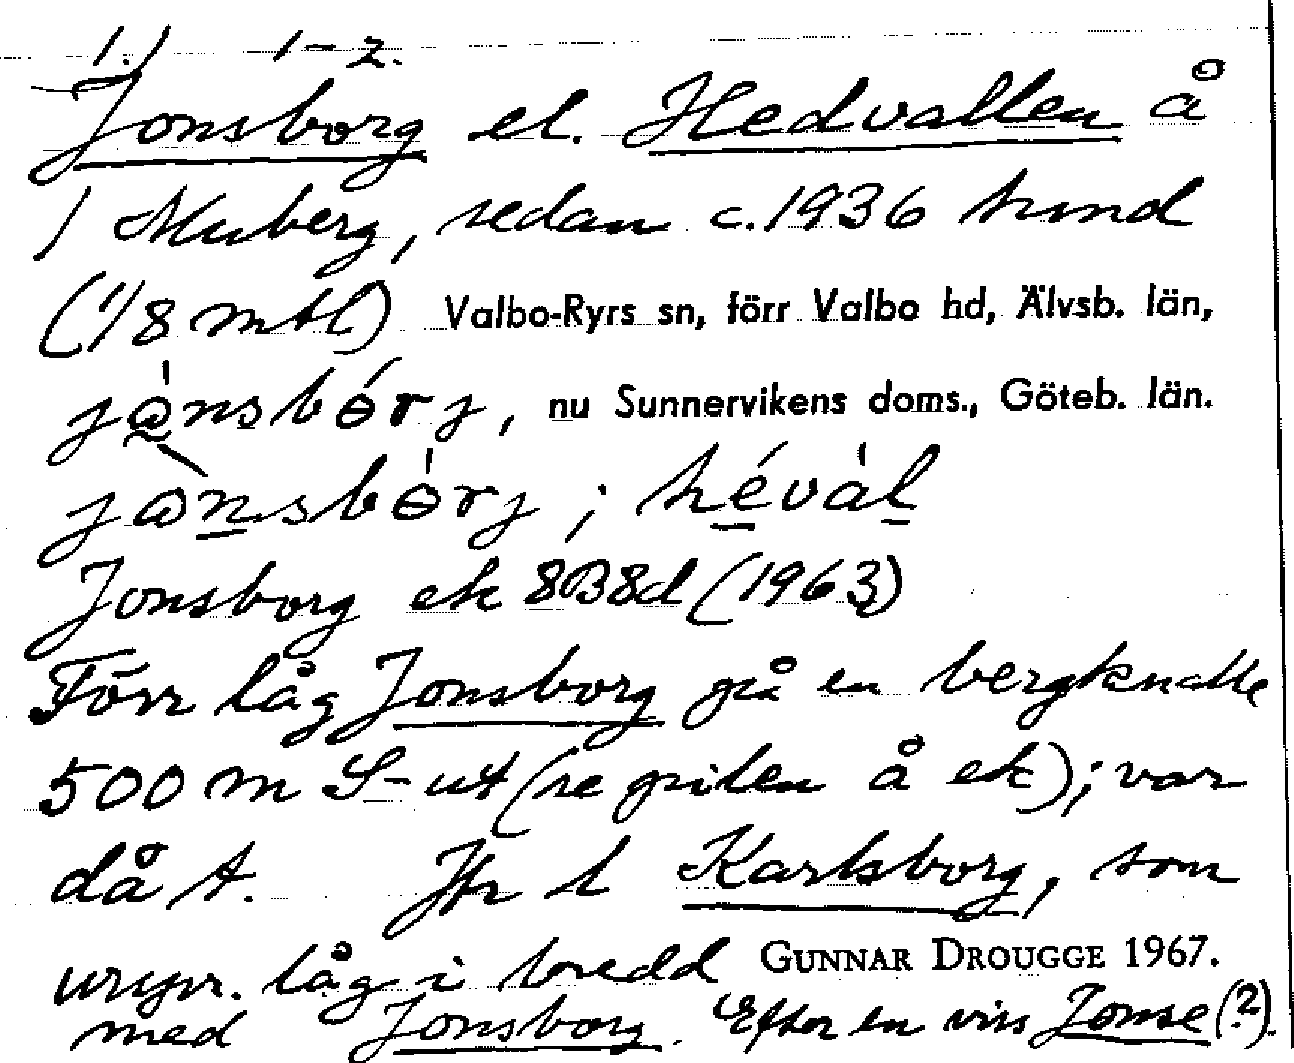 1.) 1-2.
Jonsborg el. Hedvallen å
1 Muberg, sedan c. 1936 hmd
(1/8 mtl) Valbo-Ryrs sn, förr Valbo hd, Älvsb. län,
nu Sunnervikens doms., Göteb. län.
Jonsborg ek 8B8d (1963)
Förr låg Jonsborg på en bergknalle
500 m S-ut (se pilen å ek); var
då t. Jfr l Karlsborg, som
urspr. låg i bredd GUNNAR DROUGGE 1967.
med Jonsborg. Efter en viss Jonse (?).